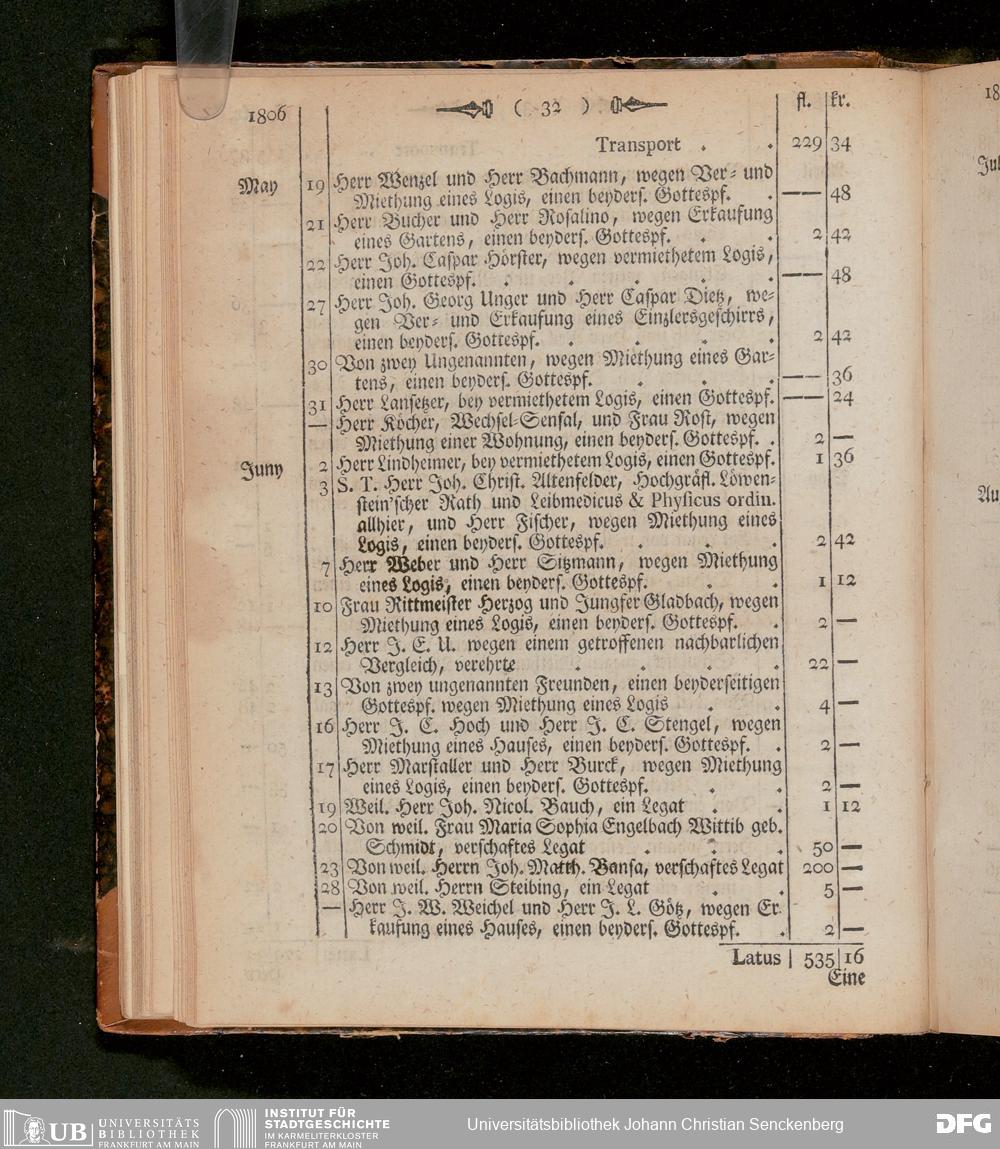 1806 ( 32 ) fl. kr.
Transport . . 229 34
May 19 Herr Wenzel und Herr Bachmann, wegen Ver- und
Miethung eines Logis, einen beyders. Gottespf. . —— 48
21 Herr Bucher und Herr Rosalino, wegen Erkaufung
eines Gartens, einen beyders. Gottespf. . . 2 42
22 Herr Joh. Caspar Hörster, wegen vermiethetem Logis,
einen Gottespf. . . . . . —— 48
27 Herr Joh. Georg Unger und Herr Caspar Dietz, we-
gen Ver- und Erkaufung eines Einzlersgeschirrs,
einen beyders. Gottespf. . . . . 2 42
30 Von zwey Ungenannten, wegen Miethung eines Gar-
tens, einen beyders. Gottespf. . . . —— 36
31 Herr Lansetzer, bey vermiethetem Logis, einen Gottespf. —— 24
— Herr Köcher, Wechsel-Sensal, und Frau Rost, wegen
Miethung einer Wohnung, einen beyders. Gottespf. . 2 —
Juny 2 Herr Lindheimer, bey vermiethetem Logis, einen Gottespf. 1 36
3 S. T. Herr Joh. Christ. Altenfelder, Hochgräfl. Löwen-
stein'scher Rath und Leibmedicus & Physicus ordin.
allhier, und Herr Fischer, wegen Miethung eines
Logis, einen beyders. Gottespf. . . . 2 42
7 Herr Weber und Herr Sitzmann, wegen Miethung
eines Logis, einen beyders. Gottespf. . . 1 12
10 Frau Rittmeister Herzog und Jungfer Gladbach, wegen
Miethung eines Logis, einen beyders. Gottespf. . 2 —
12 Herr J. E. U. wegen einem getroffenen nachbarlichen
Vergleich, verehrte . . . . 22 —
13 Von zwey ungenannten Freunden, einen beyderseitigen
Gottespf. wegen Miethung eines Logis . . 4 —
16 Herr J. C. Hoch und Herr J. C. Stengel, wegen
Miethung eines Hauses, einen beyders. Gottespf. . 2 —
17 Herr Marstaller und Herr Burck, wegen Miethung
eines Logis, einen beyders. Gottespf. . . 2 —
19 Weil. Herr Joh. Nicol. Bauch, ein Legat . . 1 12
20 Von weil. Frau Maria Sophia Engelbach Wittib geb.
Schmidt, verschaftes Legat . . . 50 —
23 Von weil. Herrn Joh. Matth. Bansa, verschaftes Legat 200 —
28 Von weil. Herrn Steibing, ein Legat . . 5 —
— Herr J. W. Weichel und Herr J. L. Götz, wegen Er
kaufung eines Hauses, einen beyders. Gottespf. . 2 —
Latus 535 16
Eine
18
Jul
Au
UB UNIVERSITÄTS
BIBLIOTHEK
FRANKFURT AM MAIN
INSTITUT FÜR
STADTGESCHICHTE
IM KARMELITERKLOSTER
FRANKFURT AM MAIN
Universitätsbibliothek Johann Christian Senckenberg
DFG